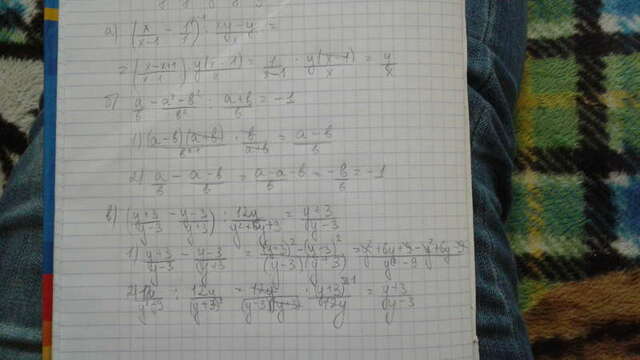 а) (x/(x-1) - 1/1) · (xy-y)/x =
= ((x-x+1)/(x-1)) · y(x-1)/x = 1/(x-1) · y(x-1)/x = y/x
б) a/b - (a²-b²)/b² : (a+b)/b = -1
1) (a-b)(a+b)/b² · b/(a+b) = (a-b)/b
2) a/b - (a-b)/b = (a-a-b)/b = -b/b = -1
в) ((y+3)/(y-3) - (y-3)/(y+3)) : 12y/(y²+6y+9) = (y+3)/(y-3)
1) (y+3)/(y-3) - (y-3)/(y+3) = ((y+3)²-(y-3)²)/((y-3)(y+3)) = (y²+6y+9-y²+6y-9)/(y²-9)
2) 12y/(y²-9) : 12y/(y+3)² = 12y/((y-3)(y+3)) · (y+3)²/12y = (y+3)/(y-3)